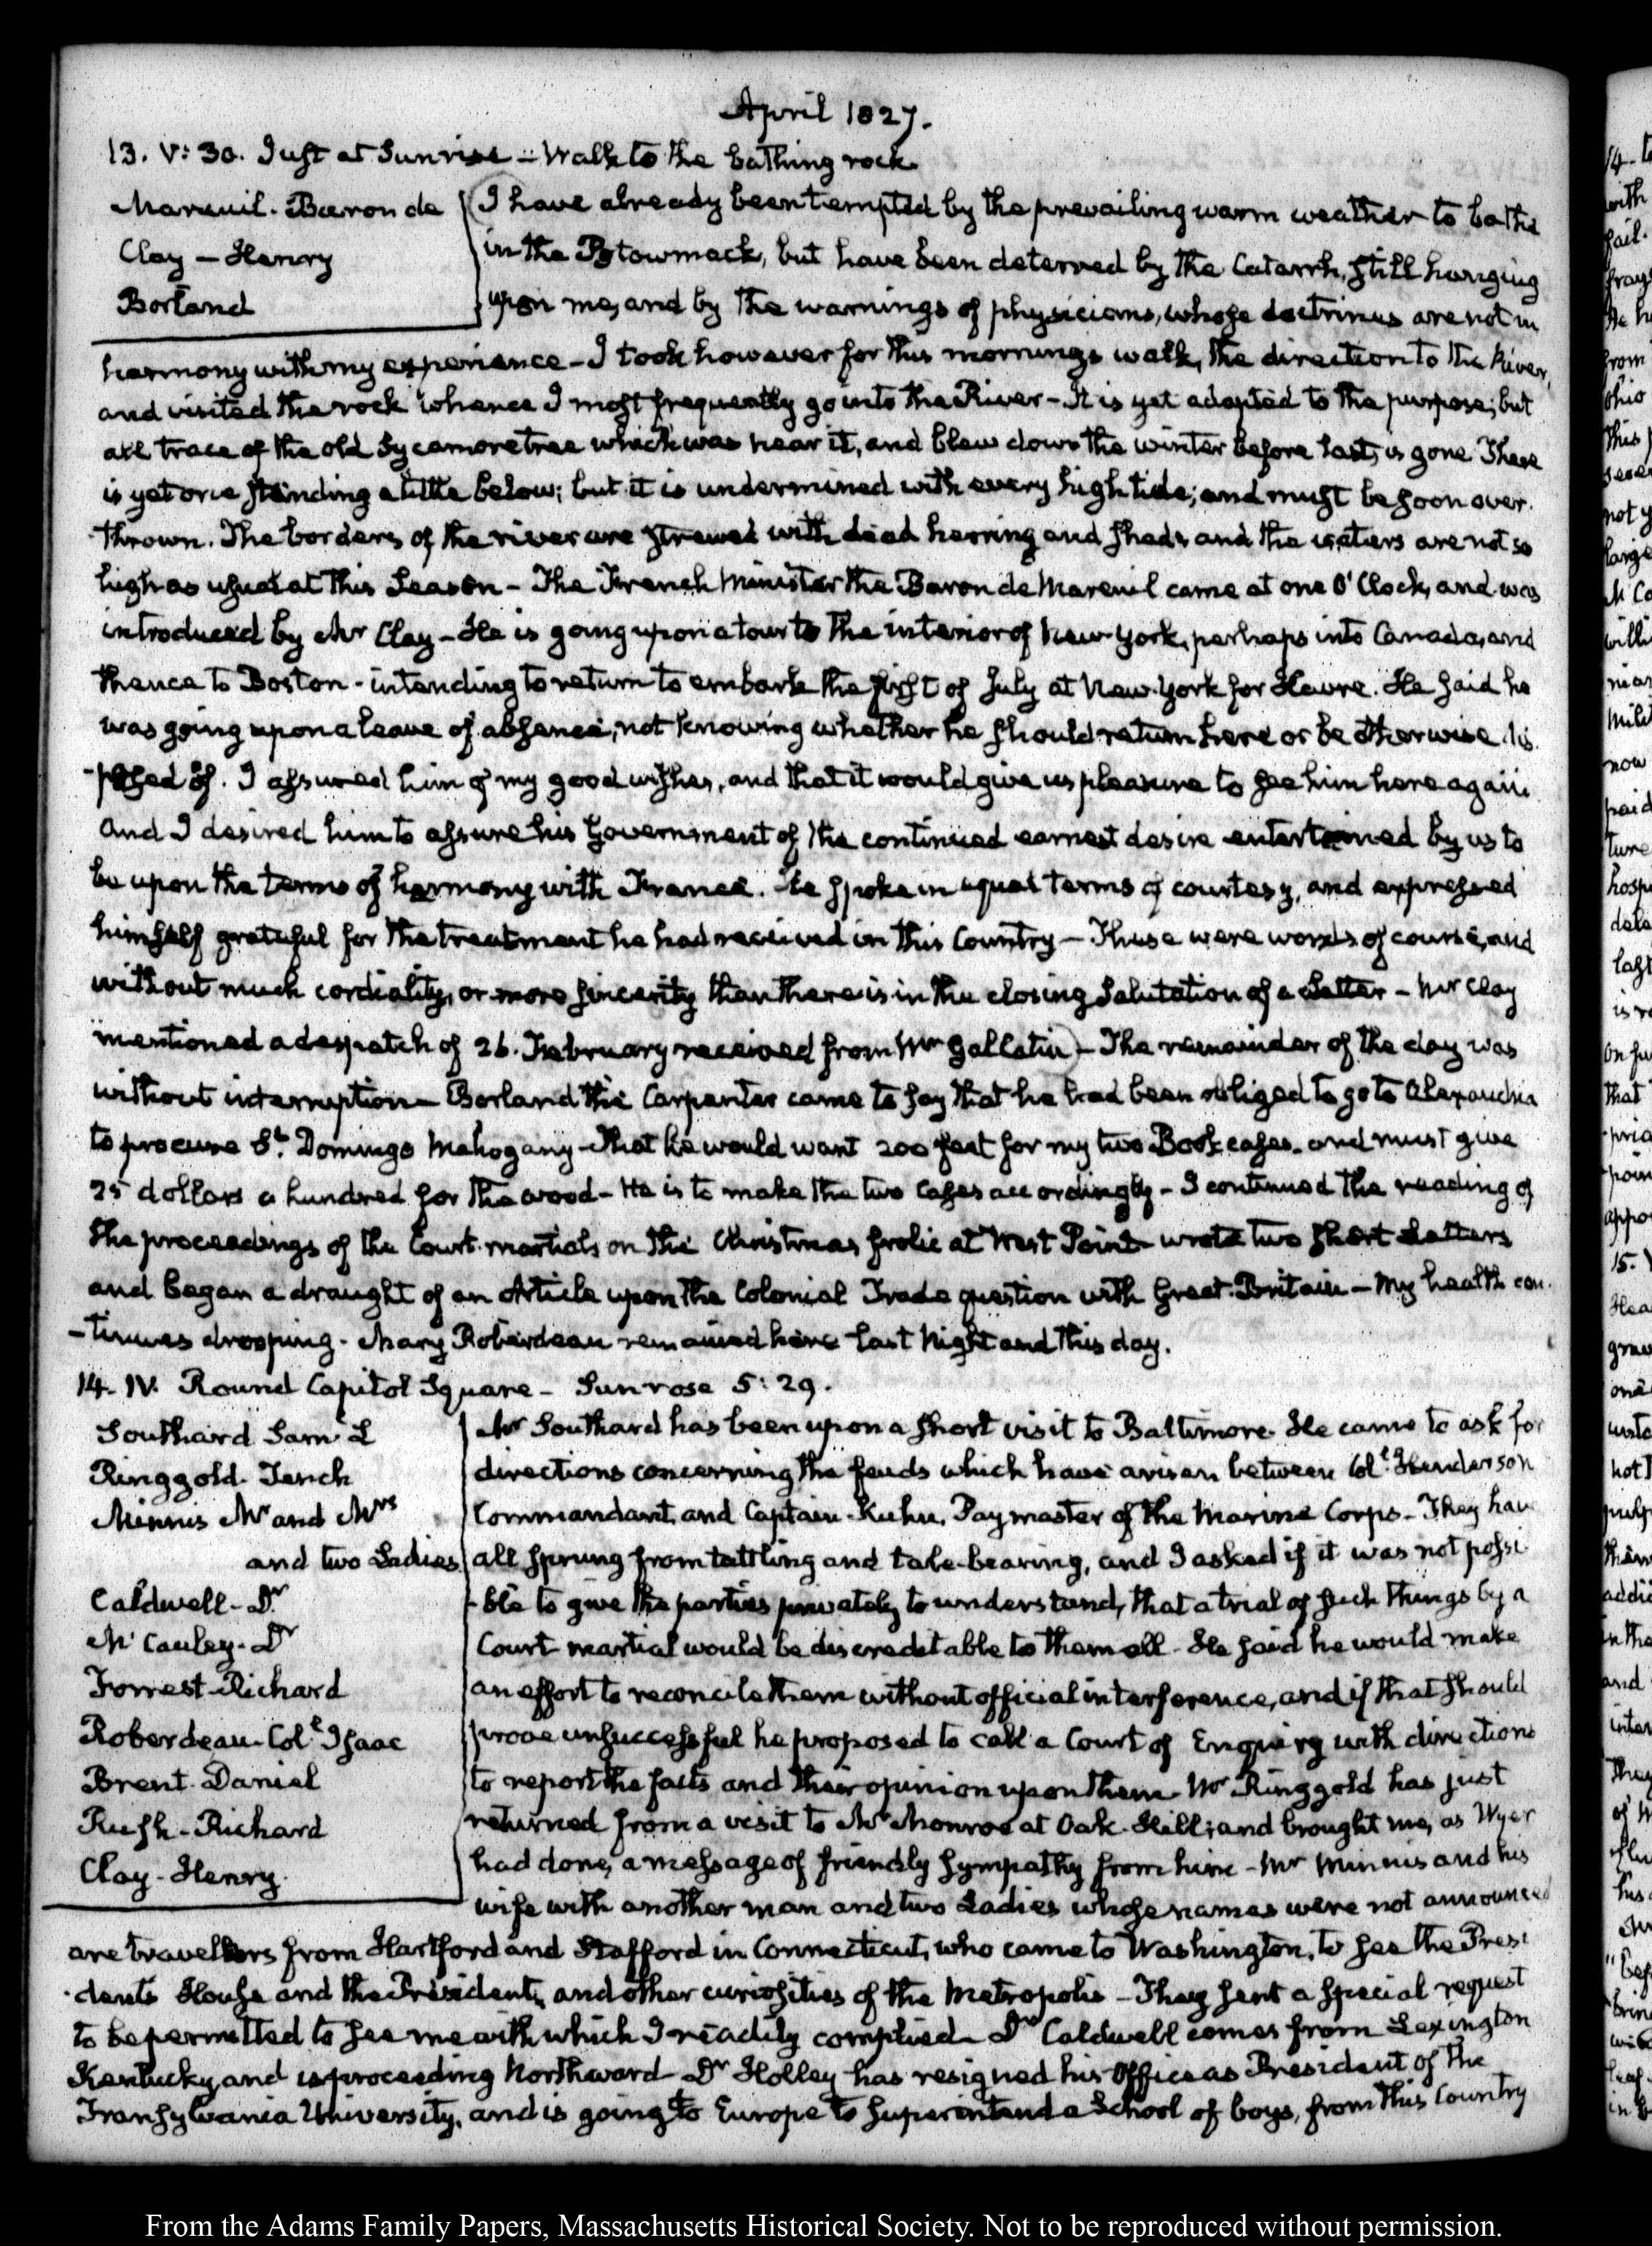 April 1827.
13. V: 30. Just at Sunrise - Walk to the bathing rock
Mareuil. Baron de
Clay - Henry
Borland
I have already been tempted by the prevailing warm weather to bathe
in the Potowmack, but have been deterred by the Catarrh, still hanging
upon me, and by the warnings of physicians, whose doctrines are not in
harmony with my experience - I took however for this mornings walk, the direction to the River,
and visited the rock whence I most frequently go into the River - It is yet adapted to the purpose; but
all trace of the old Sycamore tree which was near it, and blew down the winter before last, is gone There
is yet one standing a little below; but it is undermined with every high tide; and must be soon over-
thrown. The borders of the river are strewed with dead herring and shads and the waters are not so
high as usual at this Season - The French Minister the Baron de Mareuil came at one O'Clock, and was
introduced by Mr Clay - He is going upon a tour to the interior of New-York, perhaps into Canada, and
thence to Boston - intending to return to embark the first of July at New-York for Havre. He said he
was going upon a leave of absence, not knowing whether he should return here or be otherwise dis-
-posed of. I assured him of my good wishes, and that it would give us pleasure to see him here again
and I desired him to assure his Government of the continued earnest desire entertained by us to
be upon the terms of harmony with France. He spoke in equal terms of courtesy, and expressed
himself grateful for the treatment he had received in this Country - These were words of course, and
without much cordiality, or more sincerity than there is in the closing Salutation of a Letter - Mr Clay
mentioned a despatch of 26. February received from Mr Gallatin - The remainder of the day was
without interruption - Borland the Carpenter came to say that he had been obliged to go to Alexandria
to procure St. Domingo Mahogany - That he would want 200 feet for my two Book cases. and must give
25 dollars a hundred for the wood - He is to make the two Cases accordingly - I continued the reading of
the proceedings of the Court martials on the Christmas frolic at West Point - wrote two short Letters
and began a draught of an Article upon the Colonial Trade question with Great-Britain - My health con-
-tinues drooping - Mary Roberdeau remained here last Night and this day.
14. IV. Round Capitol Square - Sun rose 5: 29.
Southard Saml. L
Ringgold. Tench
Minnis Mr and Mrs
and two Ladies
Caldwell - Dr
McCauley - Dr
Forrest - Richard
Roberdeau - Colt Isaac
Brent - Daniel
Rush - Richard
Clay - Henry.
Mr Southard has been upon a short visit to Baltimore. He came to ask for
directions concerning the feuds which have arisen between Colt. Henderson
Commandant, and Captain Kuhn, Paymaster of the Marine Corps - They have
all sprung from tattling and tale-bearing, and I asked if it was not possi-
-ble to give the parties privately to understand, that a trial of such things by a
Court martial would be discreditable to them all - He said he would make
an effort to reconcile them without official interference, and if that should
prove unsuccessful he proposed to call a Court of Enquiry with directions
to report the facts and their opinion upon them. Mr Ringgold has just
returned from a visit to Mr Monroe at Oak-Hill; and brought me, as Wyer
had done, a message of friendly sympathy from him - Mr Minnis and his
wife with another man and two Ladies whose names were not announced
are travellers from Hartford and Stafford in Connecticut, who came to Washington, to see the Presi-
-dents House and the President, and other curiosities of the Metropolis - They sent a special request
to be permitted to see me with which I readily complied - Dr Caldwell comes from Lexington
Kentucky, and is proceeding Northward - Dr Holley has resigned his Office as President of the
Transylvania University, and is going to Europe to superintend a School of boys, from this Country
From the Adams Family Papers, Massachusetts Historical Society. Not to be reproduced without permission.